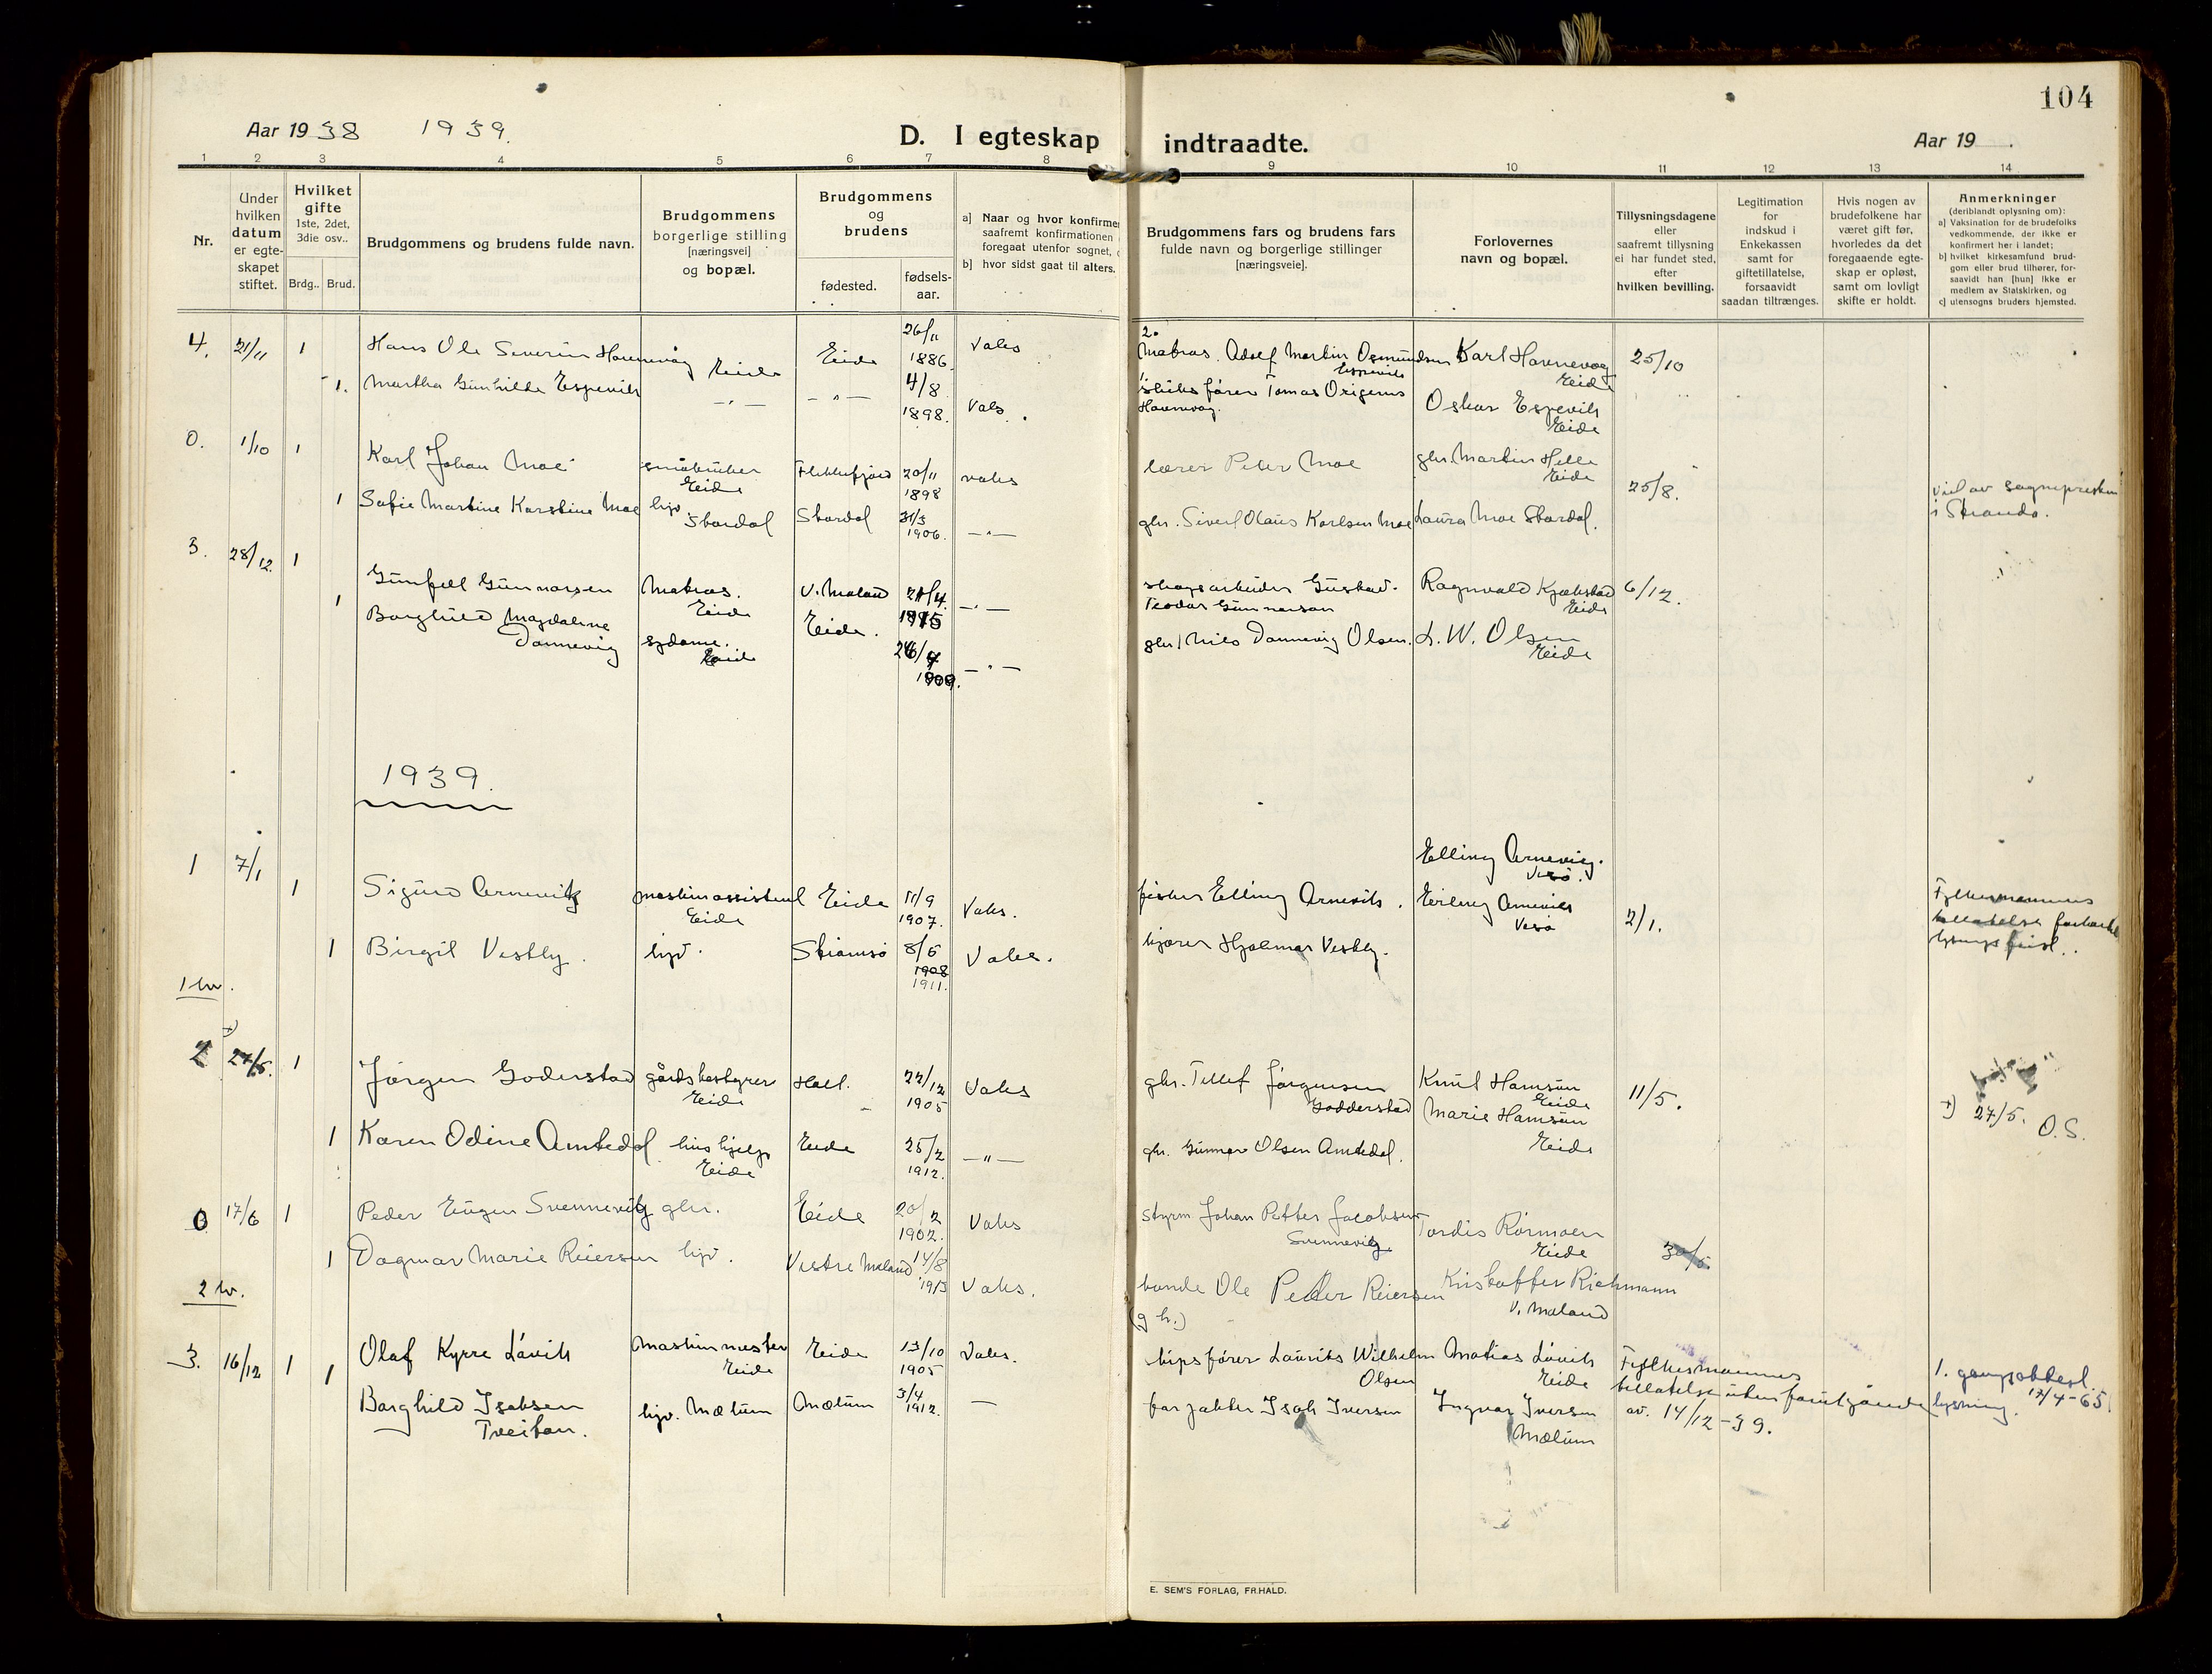 104
Aar 1938 1939.
D. I egteskap indtraadte.
Aar 19
1 2 3 4 5 6 7 8 9 10 11 12 13 14
Nr.
Under
hvilken
datum
er egte-
skapet
stiftet.
Hvilket
gifte
1ste, 2det,
3die osv..
Brdg.. Brud.
Brudgommens og brudens fulde navn.
Brudgommens
borgerlige stilling
[næringsvei]
og bopæl.
Brudgommens
og
brudens
fødested.
fødsels-
aar.
a] Naar og hvor konfirme
saafremt konfirmationen
foregaat utenfor sognet,
b] hvor sidst gaat til alters.
Brudgommens fars og brudens fars
fulde navn og borgerlige stillinger
[næringsveie].
Forlovernes
navn og bopæl.
Tillysningsdagene
eller
saafremt tillysning
ei har fundet sted,
efter
hvilken bevilling.
Legitimation
for
indskud i
Enkekassen
samt for
giftetillatelse,
forsaavidt
saadan tiltrænges.
Hvis nogen av
brudefolkene har
været gift før,
hvorledes da det
foregaaende egte-
skap er opløst,
samt om lovligt
skifte er holdt.
Anmerkninger
(deriblandt oplysning om):
a) Vaksination for de brudefolks
vedkommende, der ikke er
konfirmert her i landet;
b) hvilket kirkesamfund brud-
gom eller brud tilhører, for-
saavidt han [hun] ikke er
medlem av Statskirken, og
c) utensogns bruders hjemsted.
4. 21/11 1 Hans Ole Severin Havnevåg Eide Eide 26/11 1886. Vaks
2. Matros. Adolf Martin Osmundsen Espevik Karl Havnevåg Eide 25/10
1. Martha Gunhilde Espevik -"- -"- 4/8 1898. Vaks.
1. skibsfører Tomas Origenes Havnevåg. Oskar Espevik Eide
0. 1/10 1 Karl Johan Moe småbruker Eide Flekkefjord 20/11 1898 vaks
lærer Peter Moe gbr. Martin Helle Eide 25/8.
1 Sofie Martine Karstine Moe hjv. Stordal Stordal 31/3 1906. -"-
gbr. Sivert Olaus Karlsen Moe Laura Moe Stordal.
Viel av sognepresten
i Stranda.
3. 28/12 1 Gunfell Gunnarsen Matros. Eide V. Moland 21/4 1915 -"-
skogsarbeider Gustav Teodor Gunnarson Ragnvald Kjebstad Eide 6/12.
1 Borghild Magdalene Dannevig sydame. Eide Eide. 26/7 1909. -"-
gbr. Nils Dannevig Olsen. L. W. Olsen Eide
1939.
1 7/1 1 Sigurd Arnevik maskinassistent Eide Eide 11/9 1907. Vaks.
fisker Elling Arnevik. Elling Arnevig. Vesø. Erling Arnevik Vesø 2/1.
Fylkesmannens
tillatelse forkortet
lysningsfrist..
1 Birgit Vestby. hjv. Skiamsø 8/5 1908 1911. Vaks.
kjører Hjalmar Vestby.
1 kv.
2 27/5. 1 Jørgen Goderstad gårdsbestyrer Eide Holt. 22/12 1905 Vaks
gbr. Tellef Jørgensen Godderstad Knut Hamsun Eide 11/5.
Marie Hamsun Eide
+) 27/5. O.S.
1 Karen Odine Amtedal hushjelp Eide Eide 25/2 1912. -"-
gbr. Gunnar Olsen Amtedal.
0 17/6 1 Peder Eugen Svennevig gbr. Eide 20/2 1902. Vaks
styrm Johan Petter Jacobsen Svennevig Tordis Rørmoen Eide 30/5.
1 Dagmar Marie Reiersen hjv. Vestre Moland 14/8 1913 Vaks.
bonde Ole Peder Reiersen (gbr.) Kristoffer Richmann V. Moland
2 kv.
3. 16/12 1 Olaf Kyrre Løvik Maskinmester Eide Eide 13/10 1905 Vaks.
skipsfører Laurits Wilhelm Olsen Matias Løvik Eide
Fylkesmannens
tillatelse uten forutgående lysning.
av. 14/12-39.
1. 17/4-65.
1 Borghild Isaksen Treitan. hjv. Mælum Mælum 3/4 1912. —
forpakter Isak Iversen Ingvar Iversen Mælum
E. SEM'S FORLAG, FR.HALD.